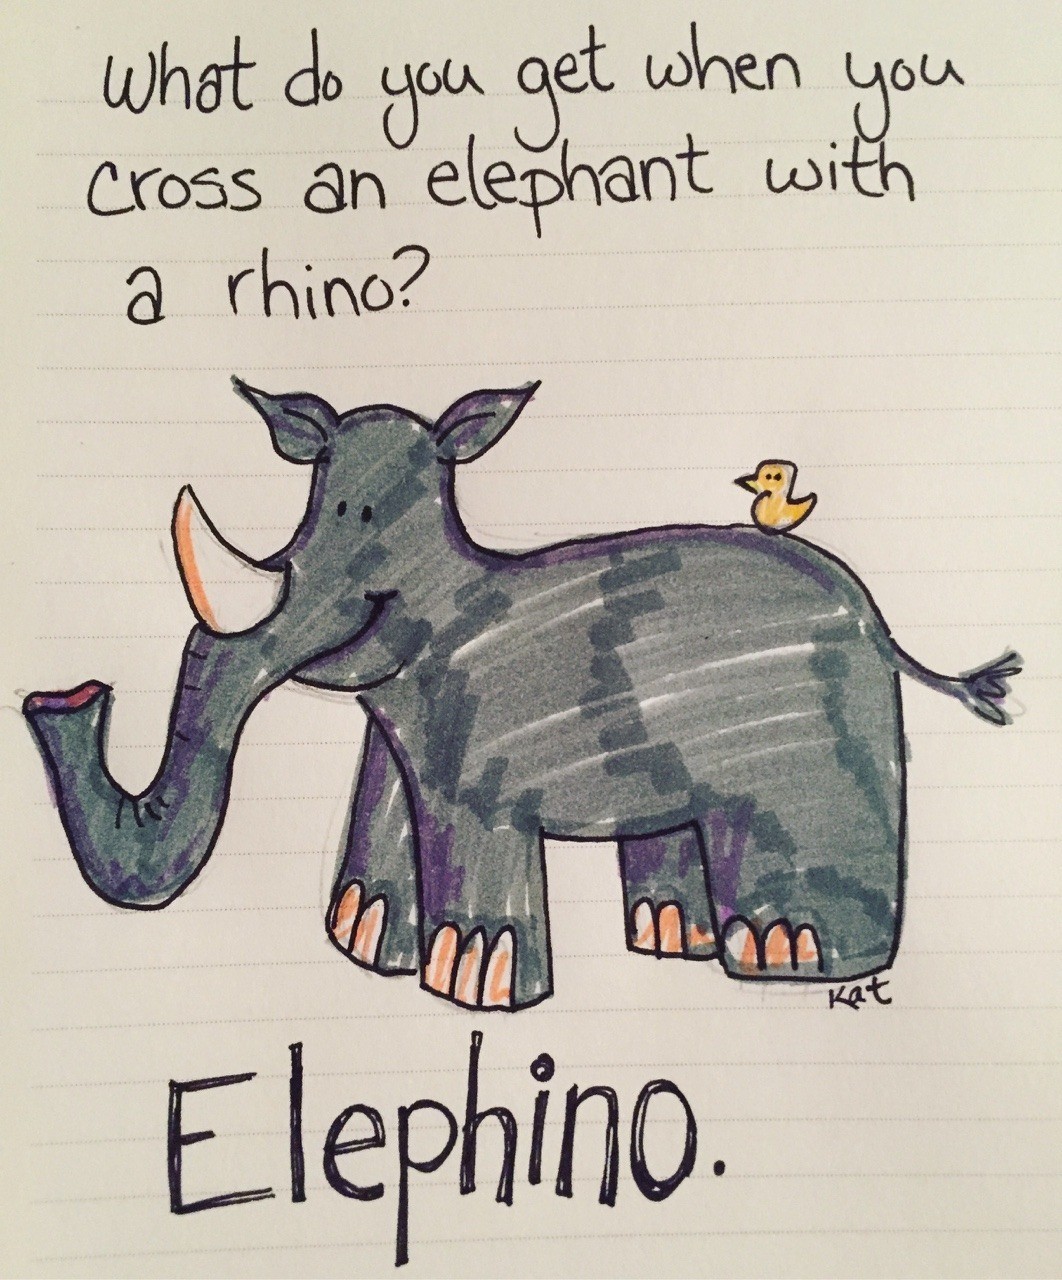 What do you get when you
cross an elephant with
a rhino?
Kat
Elephino.